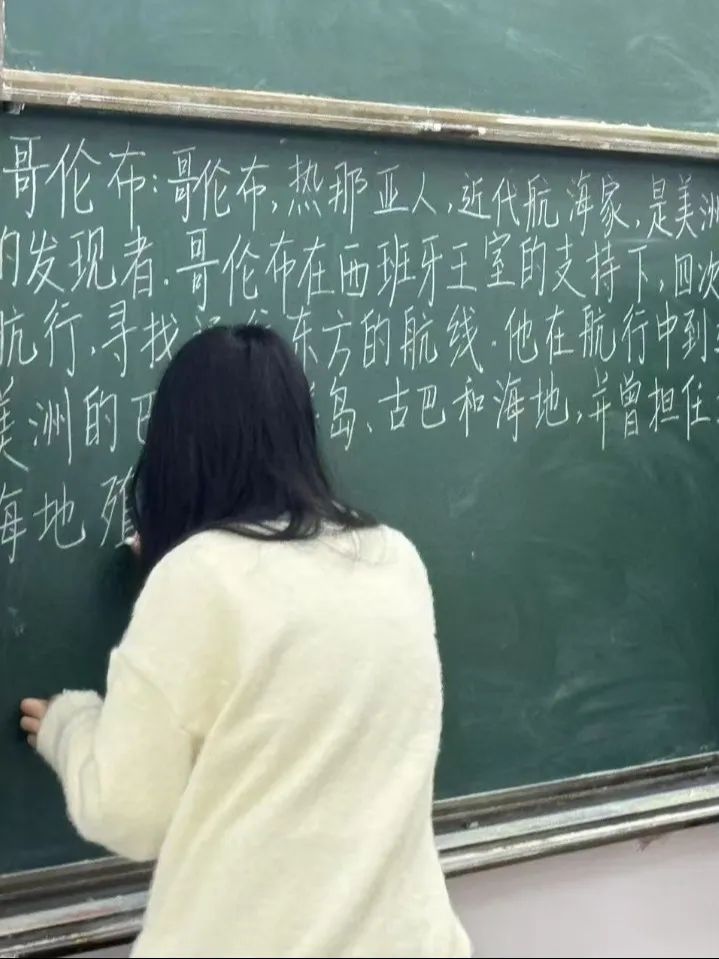 哥伦布:哥伦布,热那亚人,近代航海家,是美洲
的发现者.哥伦布在西班牙王室的支持下,四次
航行,寻找 东方的航线.他在航行中到
美洲的巴 岛、古巴和海地,并曾担任
海地殖